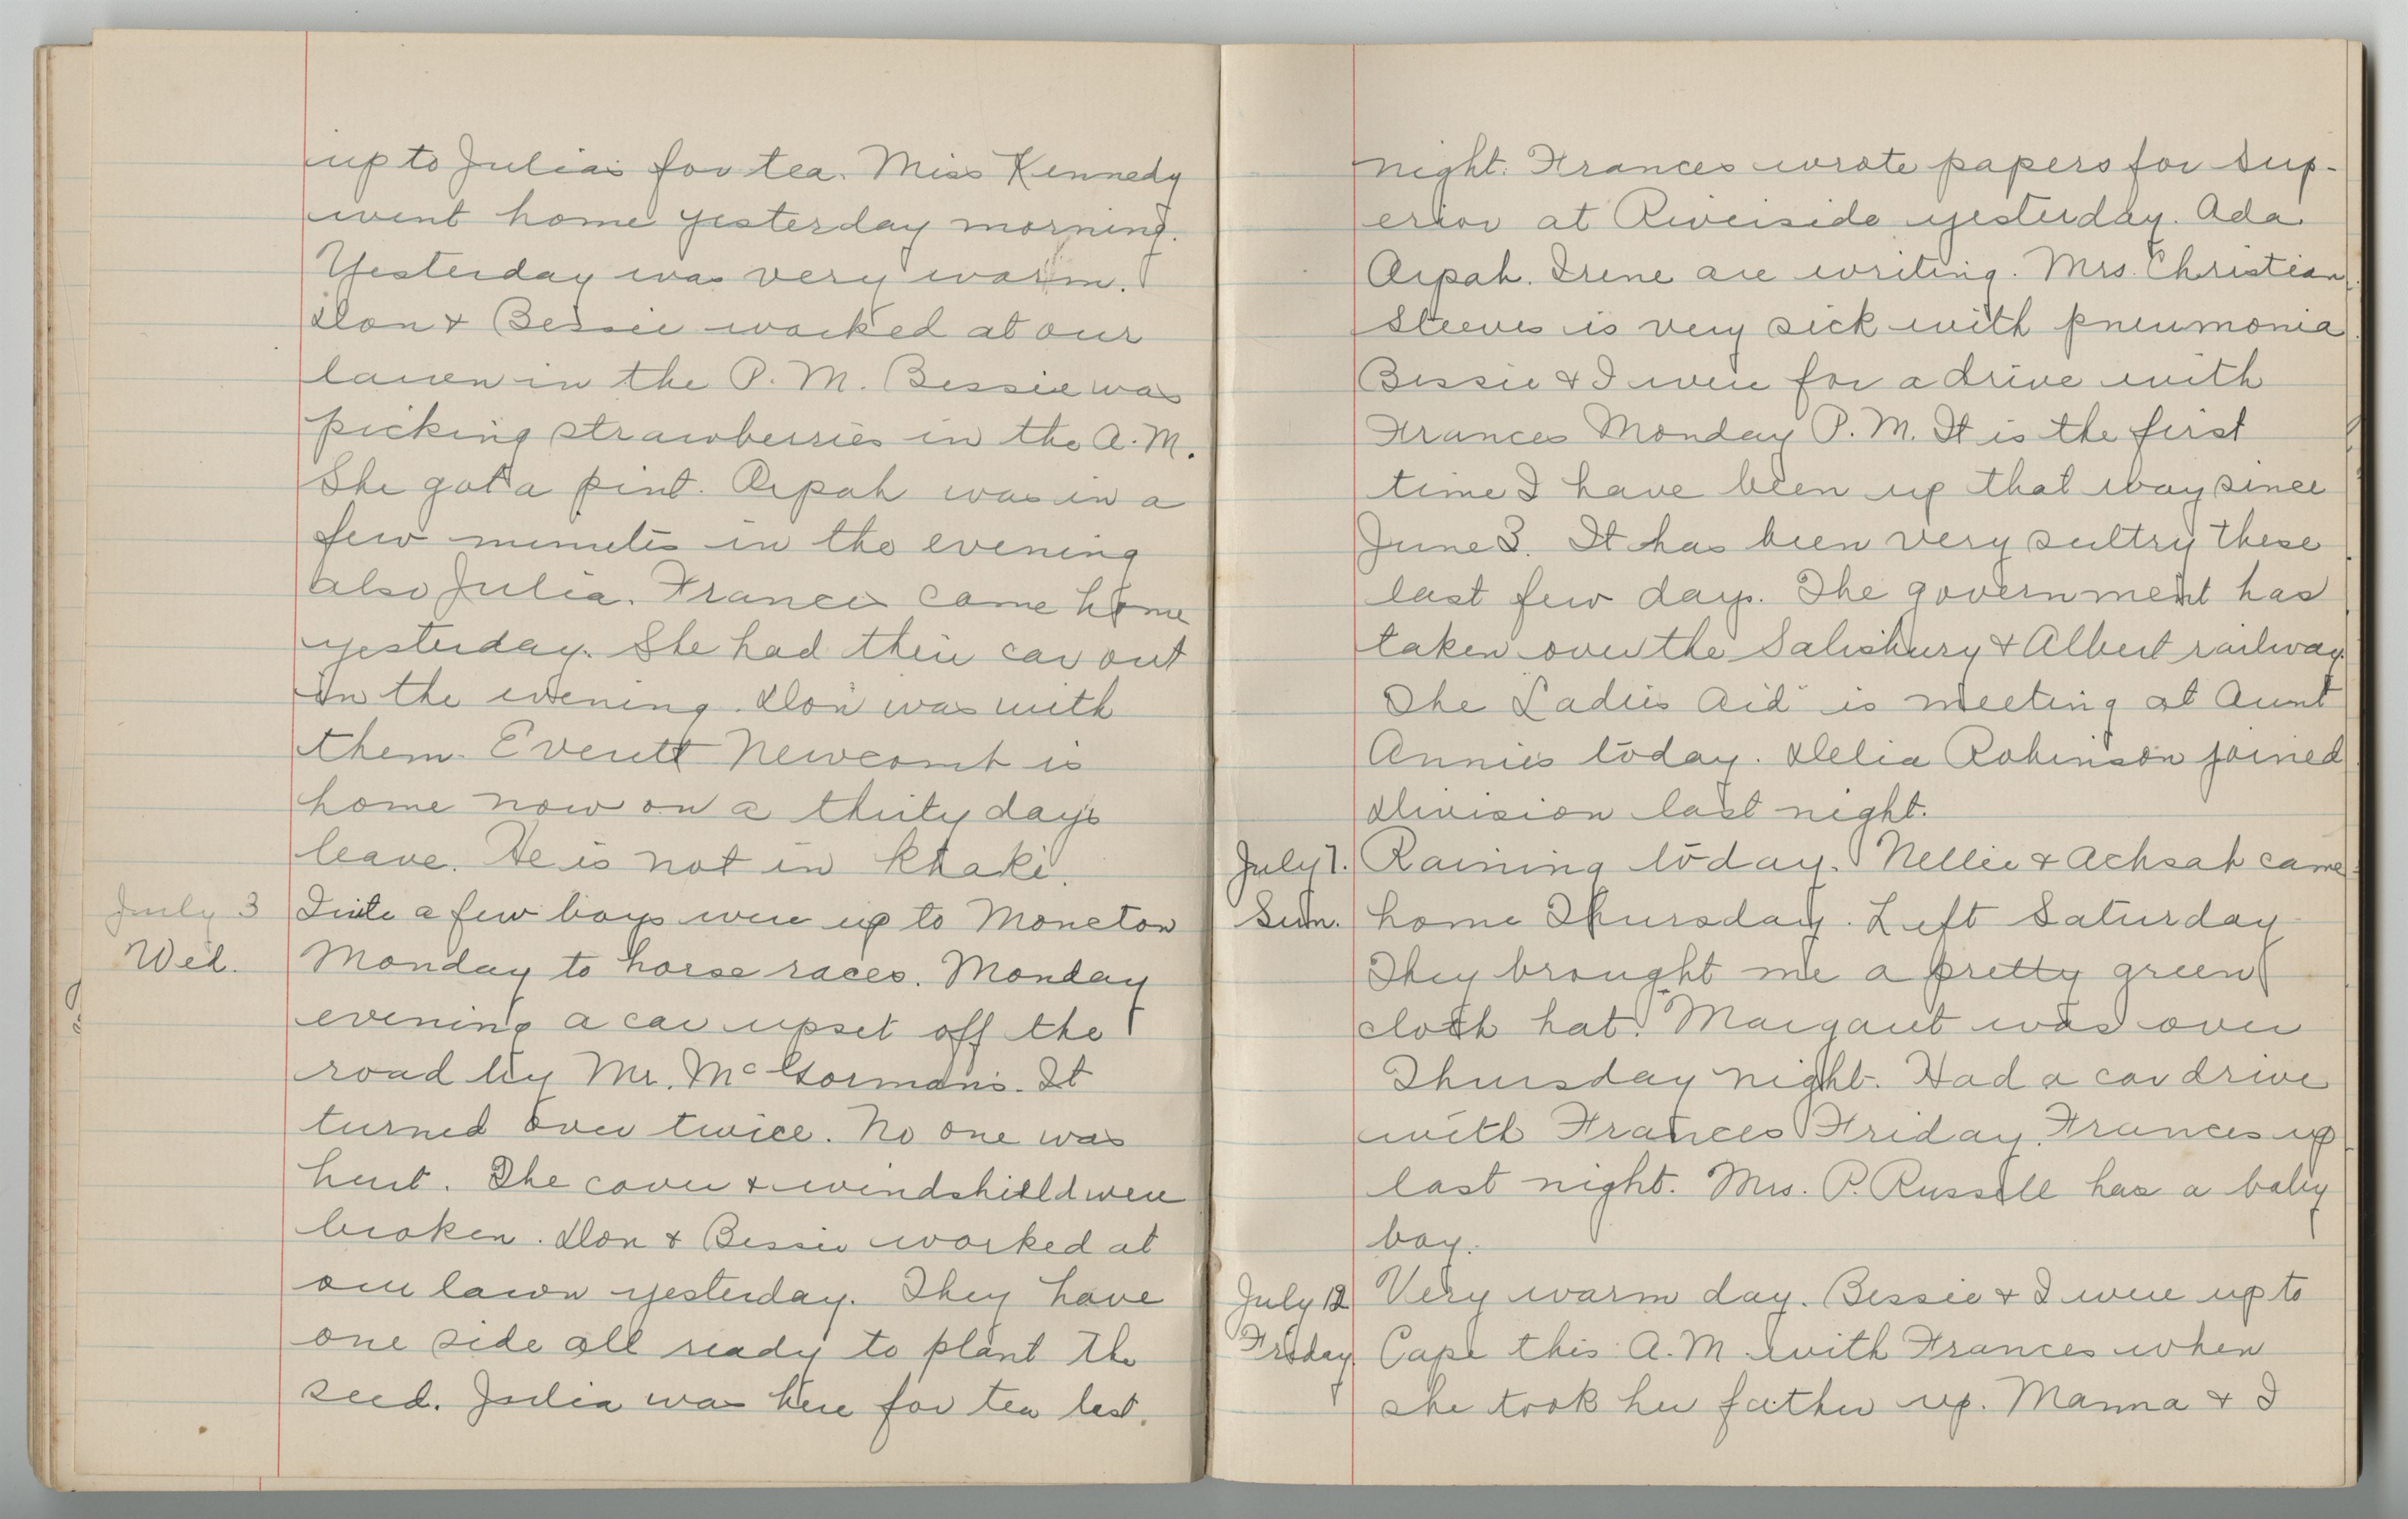 up to Julia's for tea. Miss Kennedy
went home yesterday morning.
Yesterday was very warm.
Don & Bessie worked at our
lawn in the P. M. Bessie was
picking strawberries in the A. M.
She got a pint. Arpah was in a
few minutes in the evening
also Julia. Frances came home
yesterday. She had their car out
in the evening. Don was with
them. Everett Newcomb is
home now on a thirty days
leave. He is not in Khaki.
July 3
Wed.
Quite a few boys were up to Moncton
Monday to horse races. Monday
evening a car upset off the
road by Mr. McGorman's. It
turned over twice. No one was
hurt. The cover & windshield were
broken. Don & Bessie worked at
our lawn yesterday. They have
one side all ready to plant the
seed. Julia was here for tea last.
night. Frances wrote papers for Sup-
erior at Riverside yesterday. Ada
Arpah. Irene are writing. Mrs. Christian
Steeves is very sick with pneumonia
Bessie & I were for a drive with
Frances Monday P. M. It is the first
time I have been up that way since
June 3. It has been very sultry these
last few days. The government has
taken over the Salisbury & Albert railway.
The "Ladies Aid" is meeting at Aunt
Annie's today. Delia Robinson joined
Division last night.
July 7.
Sun.
Raining today. Nellie & Achsah came
home Thursday. Left Saturday
They brought me a pretty green
cloth hat. Margaret was over
Thursday night. Had a car drive
with Frances Friday. Frances up
last night. Mrs. P. Russell has a baby
boy.
July 12
Friday
Very warm day. Bessie & I were up to
Cape this A. M. with Frances when
she took her father up. Mamma & I